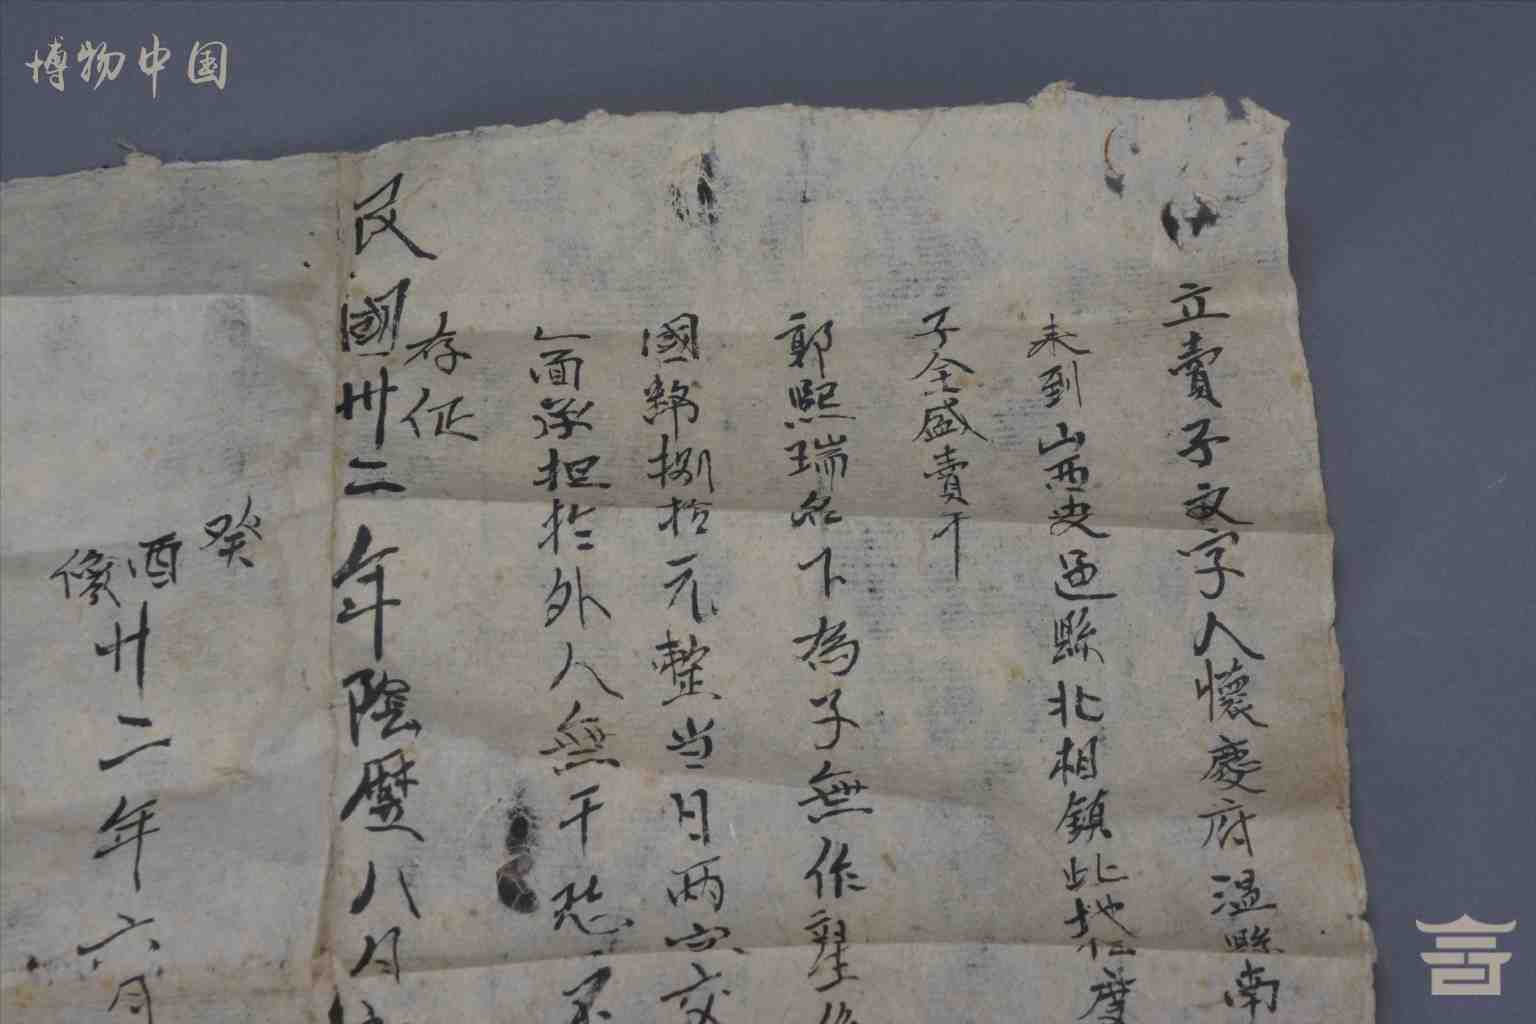 博物中国
立賣子文字人懷慶府溫縣南
来到山西安邑縣北相鎮此地
子全盛賣干
郭熙瑞名下為子無作
國幣捌拾元整当日兩交
面承担於外人無干恐
存征
民國卅二年陰歷八月
癸
酉
卄二年六月